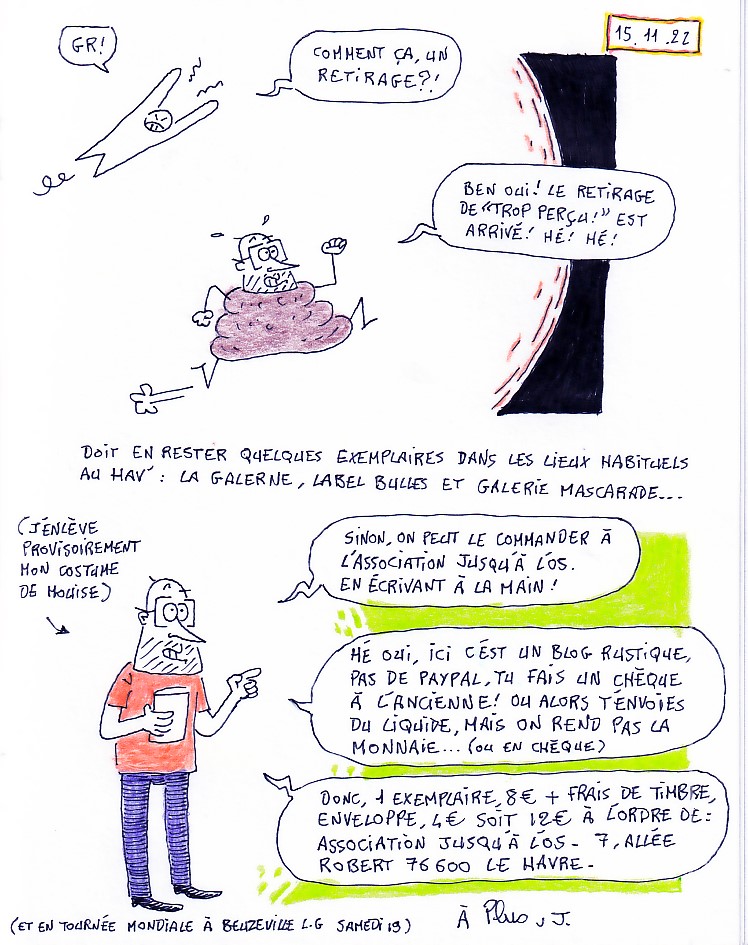 15.11.22
GR!
COMMENT ÇA, UN
RETIRAGE?!
BEN OUI! LE RETIRAGE
DE "TROP PERÇU!" EST
ARRIVÉ! HÉ! HÉ!
DOIT EN RESTER QUELQUES EXEMPLAIRES DANS LES LIEUX HABITUELS
AU HAV' : LA GALERNE, LABEL BULLES ET GALERIE MASCARADE...
(J'ENLÈVE
PROVISOIREMENT
MON COSTUME
DE MOUISE)
SINON, ON PEUT LE COMMANDER À
L'ASSOCIATION JUSQU'À L'OS.
EN ÉCRIVANT À LA MAIN!
HÉ OUI, ICI C'EST UN BLOG RUSTIQUE,
PAS DE PAYPAL, TU FAIS UN CHÈQUE
À L'ANCIENNE! OU ALORS T'ENVOIES
DU LIQUIDE, MAIS ON REND PAS LA
MONNAIE... (OU EN CHÈQUE)
DONC, 1 EXEMPLAIRE, 8€ + FRAIS DE TIMBRE,
ENVELOPPE, 4€ SOIT 12€ À L'ORDRE DE:
ASSOCIATION JUSQU'À L'OS - 7, ALLÉE
ROBERT 76600 LE HAVRE -
(ET EN TOURNÉE MONDIALE À BEUZEVILLE L.G SAMEDI 19)
À Plus, J.